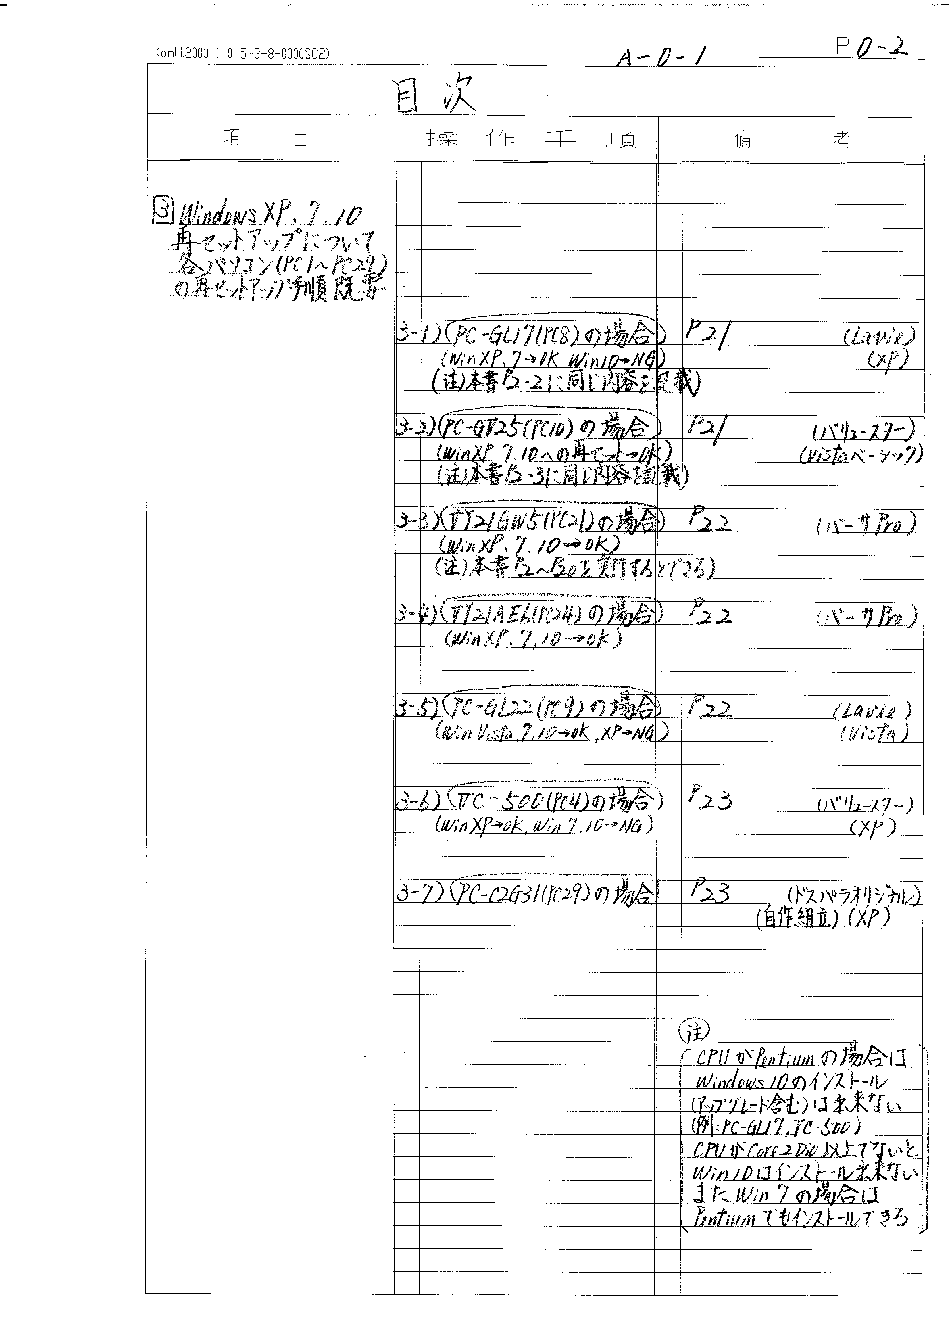 A-0-1
P0-2
目次
項目 操作手順 備考
3 Windows XP、7、10
再セットアップについて
各パソコン(PC1〜PC29)
の再セットアップ手順概要
3-1)(PC-GL17(PC8)の場合) P21 (Lavie)
(WinXP、7→OK Win10→NG) (XP)
(注)本書P2-2に同じ内容を記載)
3-2)(PC-GV25(PC10)の場合) P21 (バリュースター)
(WinXP、7、10への再セット→OK) (Vistaベーシック)
(注)本書P2-3に同じ内容を記載)
3-3)(VY21GW5(PC21)の場合) P22 (バーサPro)
(WinXP、7、10→OK)
(注)本書P2〜P20を実行するとできる)
3-4)(VY21AEL(PC24)の場合) P22 (バーサPro)
(WinXP、7、10→OK)
3-5)(PC-GL22(PC9)の場合) P22 (Lavie)
(Win Vista、7、10→OK、XP→NG) (Vista)
3-6)(VC-500(PC4)の場合) P23 (バリュースター)
(WinXP→OK、Win7、10→NG) (XP)
3-7)(PC-C2G31(PC29)の場合) P23 (ドスパラオリジナル)
(自作組立)(XP)
注
CPUがPentiumの場合は
Windows10のインストール
(アップグレード含む)は出来ない
(例:PC-GL17、VC-500)
CPUがCore2Duo以上でないと
Win10はインストール出来ない
またWin7の場合は
Pentiumでもインストールできる